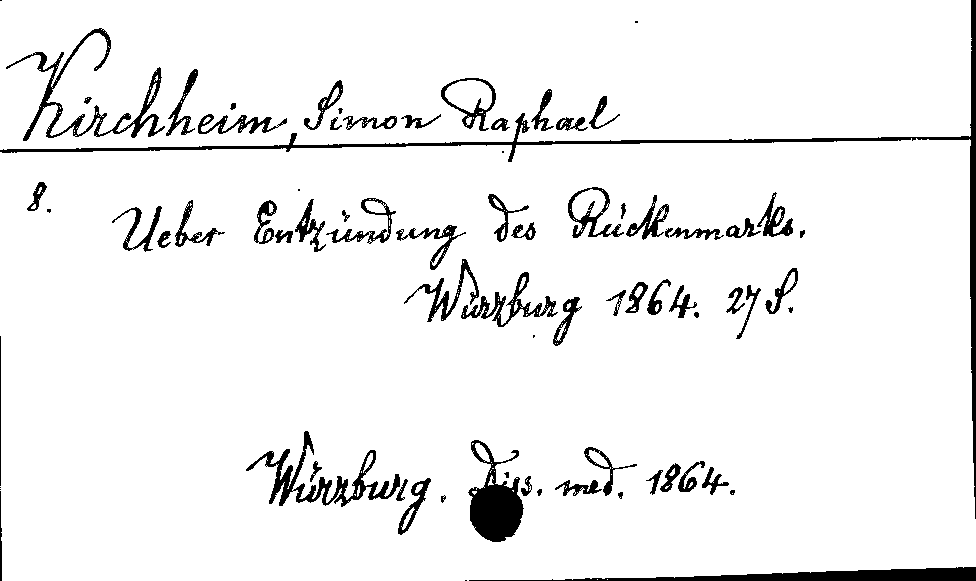 Kirchheim, Simon Raphael
8.
Ueber Entzündung des Rückenmarks.
Würzburg 1864. 27 S.
Würzburg. Diss. med. 1864.